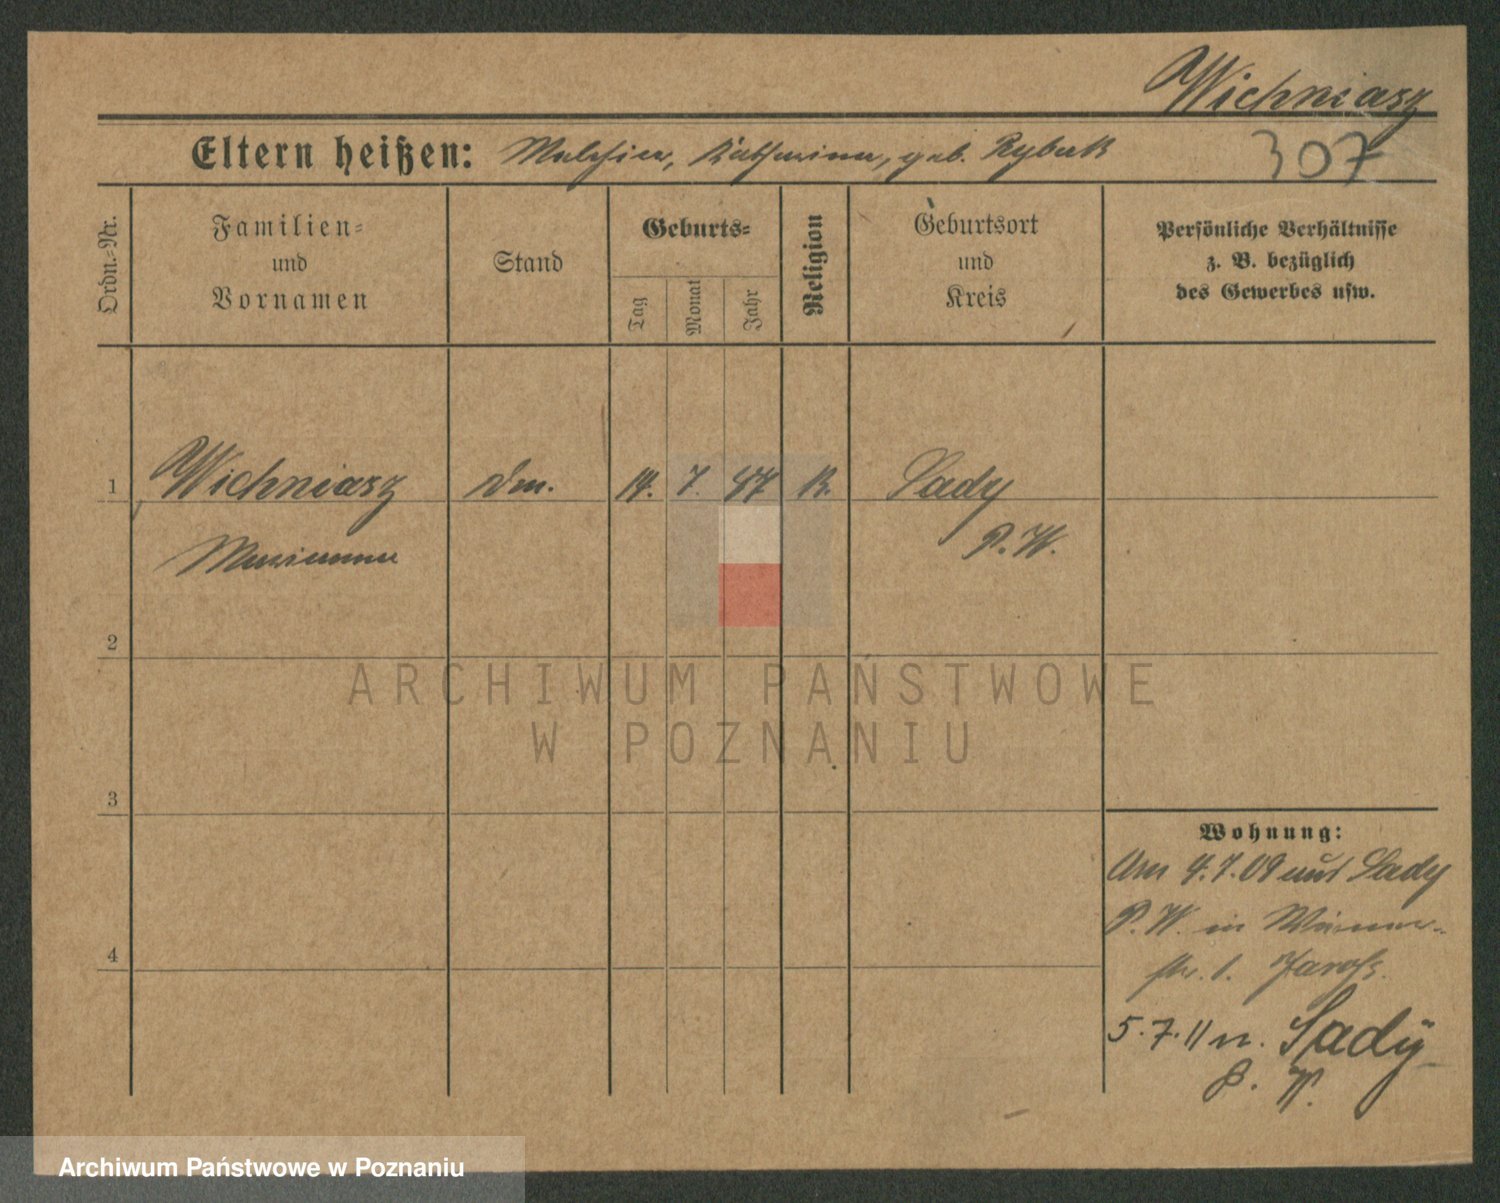 Wichniasz
Eltern heißen: Melchior, Katharina, geb. Rybak
307
Ordn.-Nr.
Familien-
und
Vornamen
Stand
Geburts-
Tag
Monat
Jahr
Religion
Geburtsort
und
Kreis
Persönliche Verhältnisse
z. B. bezüglich
des Gewerbes usw.
1
Wichniasz
14. 7. 87 K.
Sady
P. W.
Marianna
2
ARCHIWUM PAŃSTWOWE
W POZNANIU
3
Wohnung:
Am 4.7.09 aus Sady
P. W. in
4
str. 1.
5.7.11 n. Sady
P. W.
Archiwum Państwowe w Poznaniu